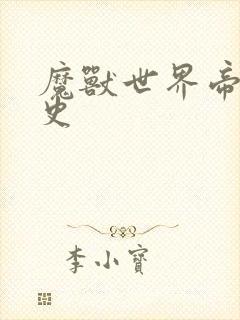 魔獸世界帝
史
李小寶